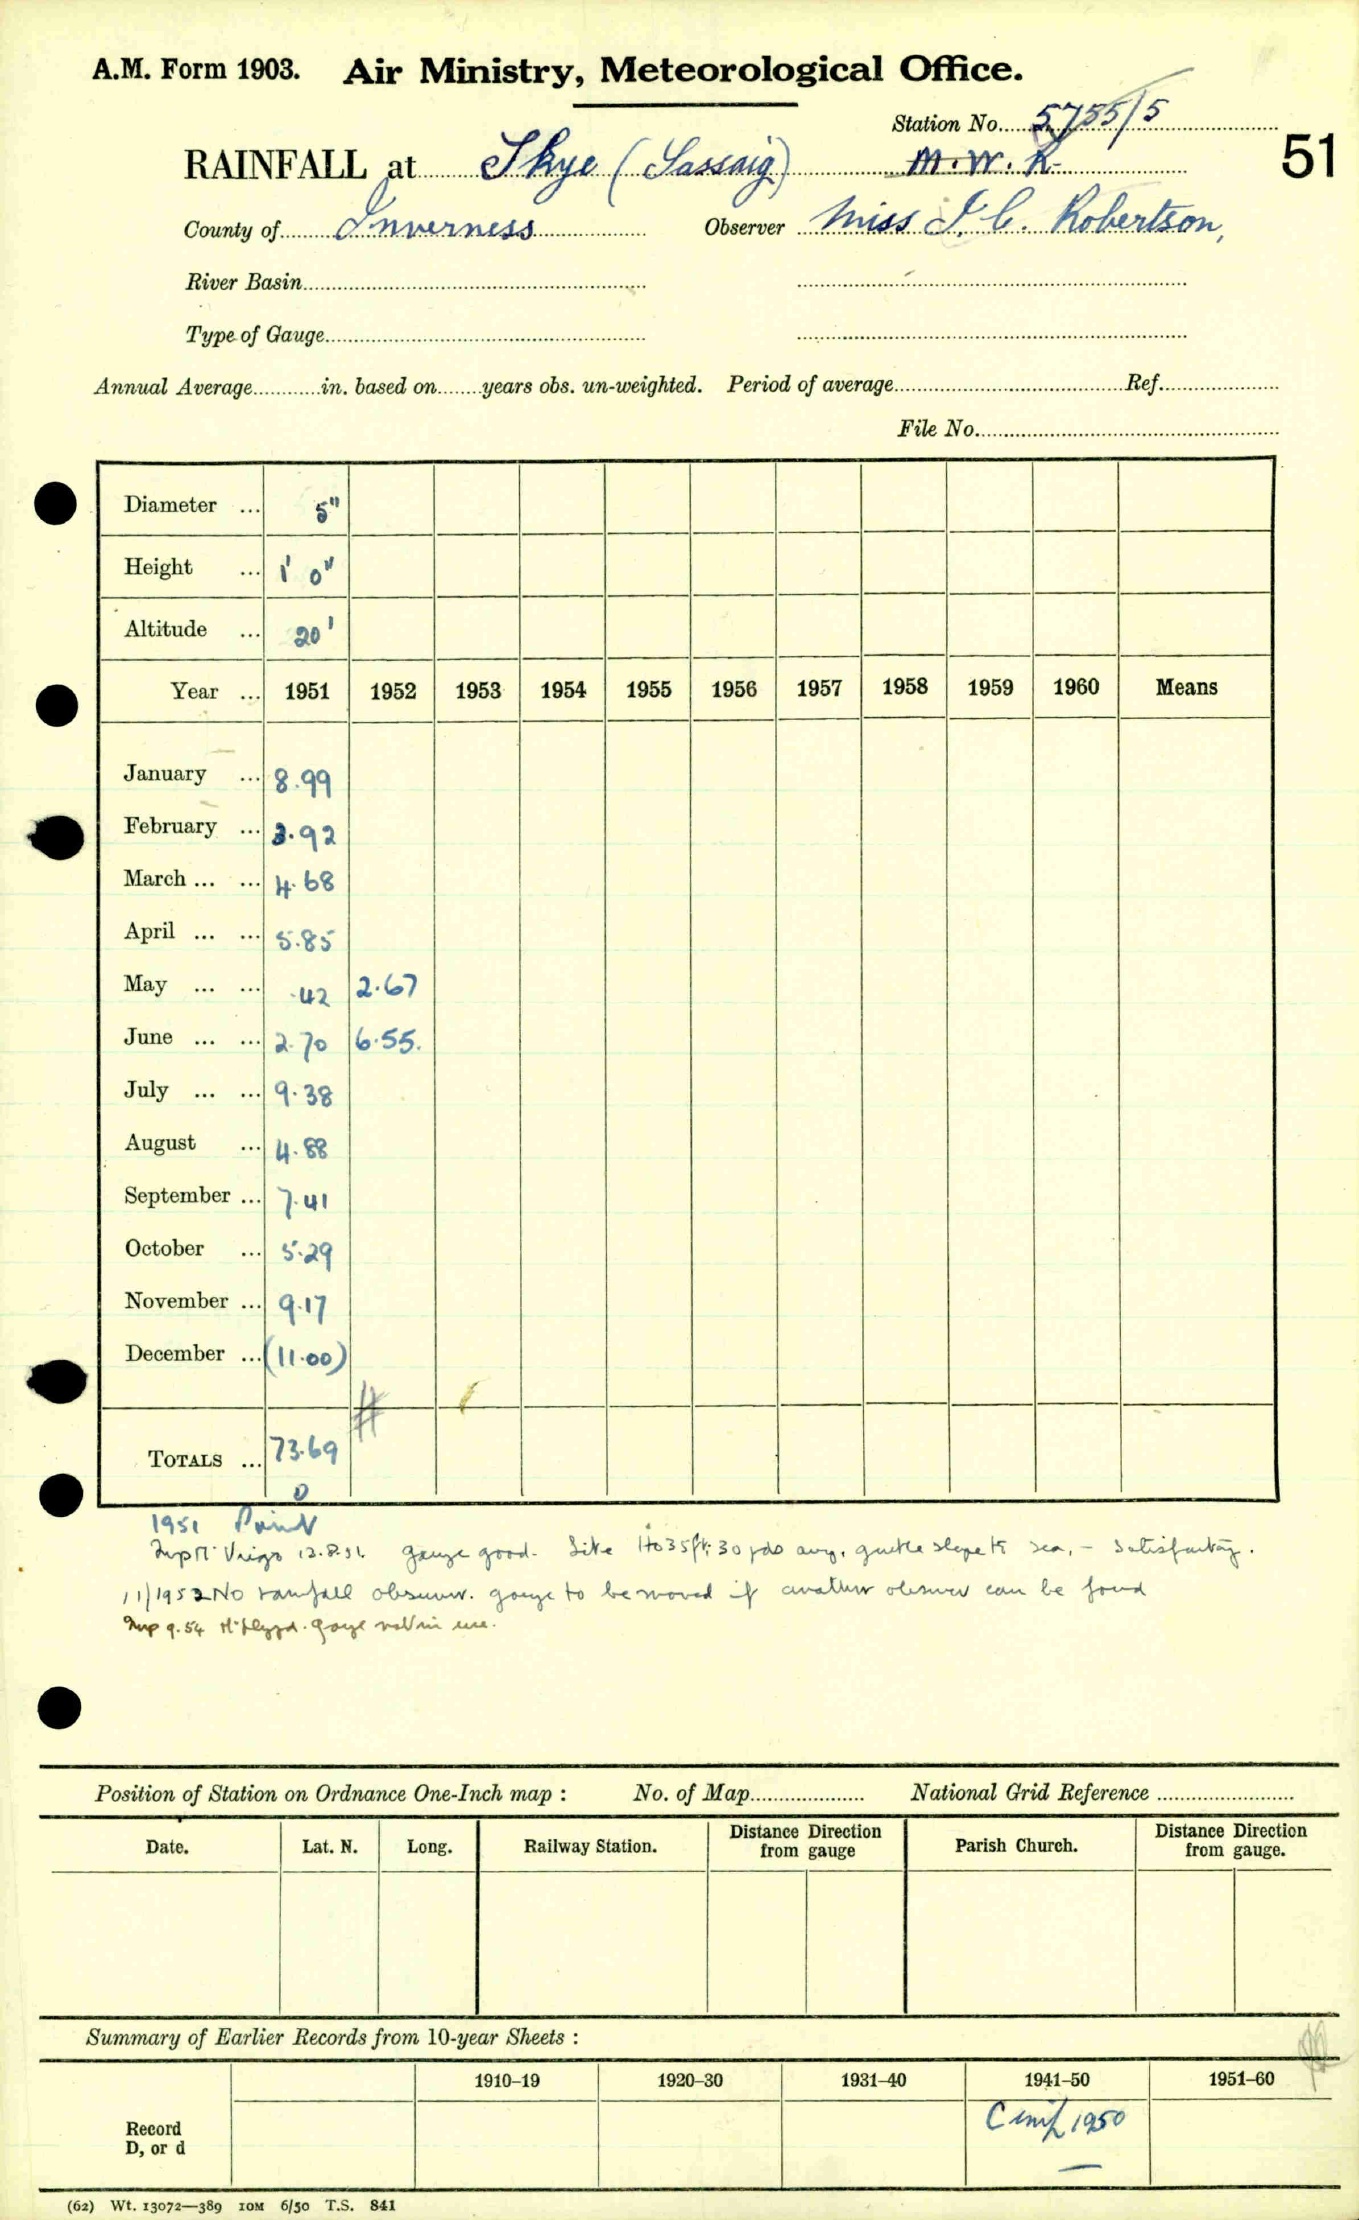 A.M. Form 1903. Air Ministry, Meteorological Office.
Station No. 5755/5
RAINFALL at Skye (Sassaig) M.W.R. 51
County of Inverness Observer Miss I. C. Robertson,
River Basin
Type of Gauge
Annual Average in. based on years obs. un-weighted. Period of average Ref.
File No.
Diameter ... 5"
Height ... 1' 0"
Altitude ... 20'
Year ... 1951 1952 1953 1954 1955 1956 1957 1958 1959 1960 Means
January ... 8.99
February ... 3.92
March ... ... 4.68
April ... ... 5.85
May ... ... .42 2.67
June ... ... 2.70 6.55.
July ... ... 9.38
August ... 4.88
September ... 7.41
October ... 5.29
November ... 9.17
December ... (11.00)
TOTALS ... 73.69
0
1951
12.8.51. gauge good. Site 30 yds away, gentle slope to sea, - satisfactory.
11/1952 No rainfall observer. gauge to be moved if another observer can be found
Insp 9.54 gauge not in use.
Position of Station on Ordnance One-Inch map : No. of Map National Grid Reference
Date. Lat. N. Long. Railway Station. Distance Direction from gauge Parish Church. Distance Direction from gauge.
Summary of Earlier Records from 10-year Sheets :
1910–19 1920–30 1931–40 1941–50 1951–60
Record
D, or d
1950
(62) Wt. 13072—389 10M 6/50 T.S. 841